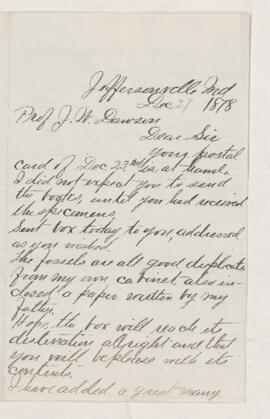 Jeffersonville Ind
Dec 27 1878
Prof J. W. Dawson
Dear Sir
Your postal
card of Dec 23rd is at hand.
I did not expect you to send
the books, until you had received
the specimens,
Sent box today to you, addressed
as you wished.
The fossils are all good duplicates
from my own cabinet, also in-
closed a paper written by my
father.
Hope the box will reach its
destination allright and that
you will be please with its
contents.
I have added a great many